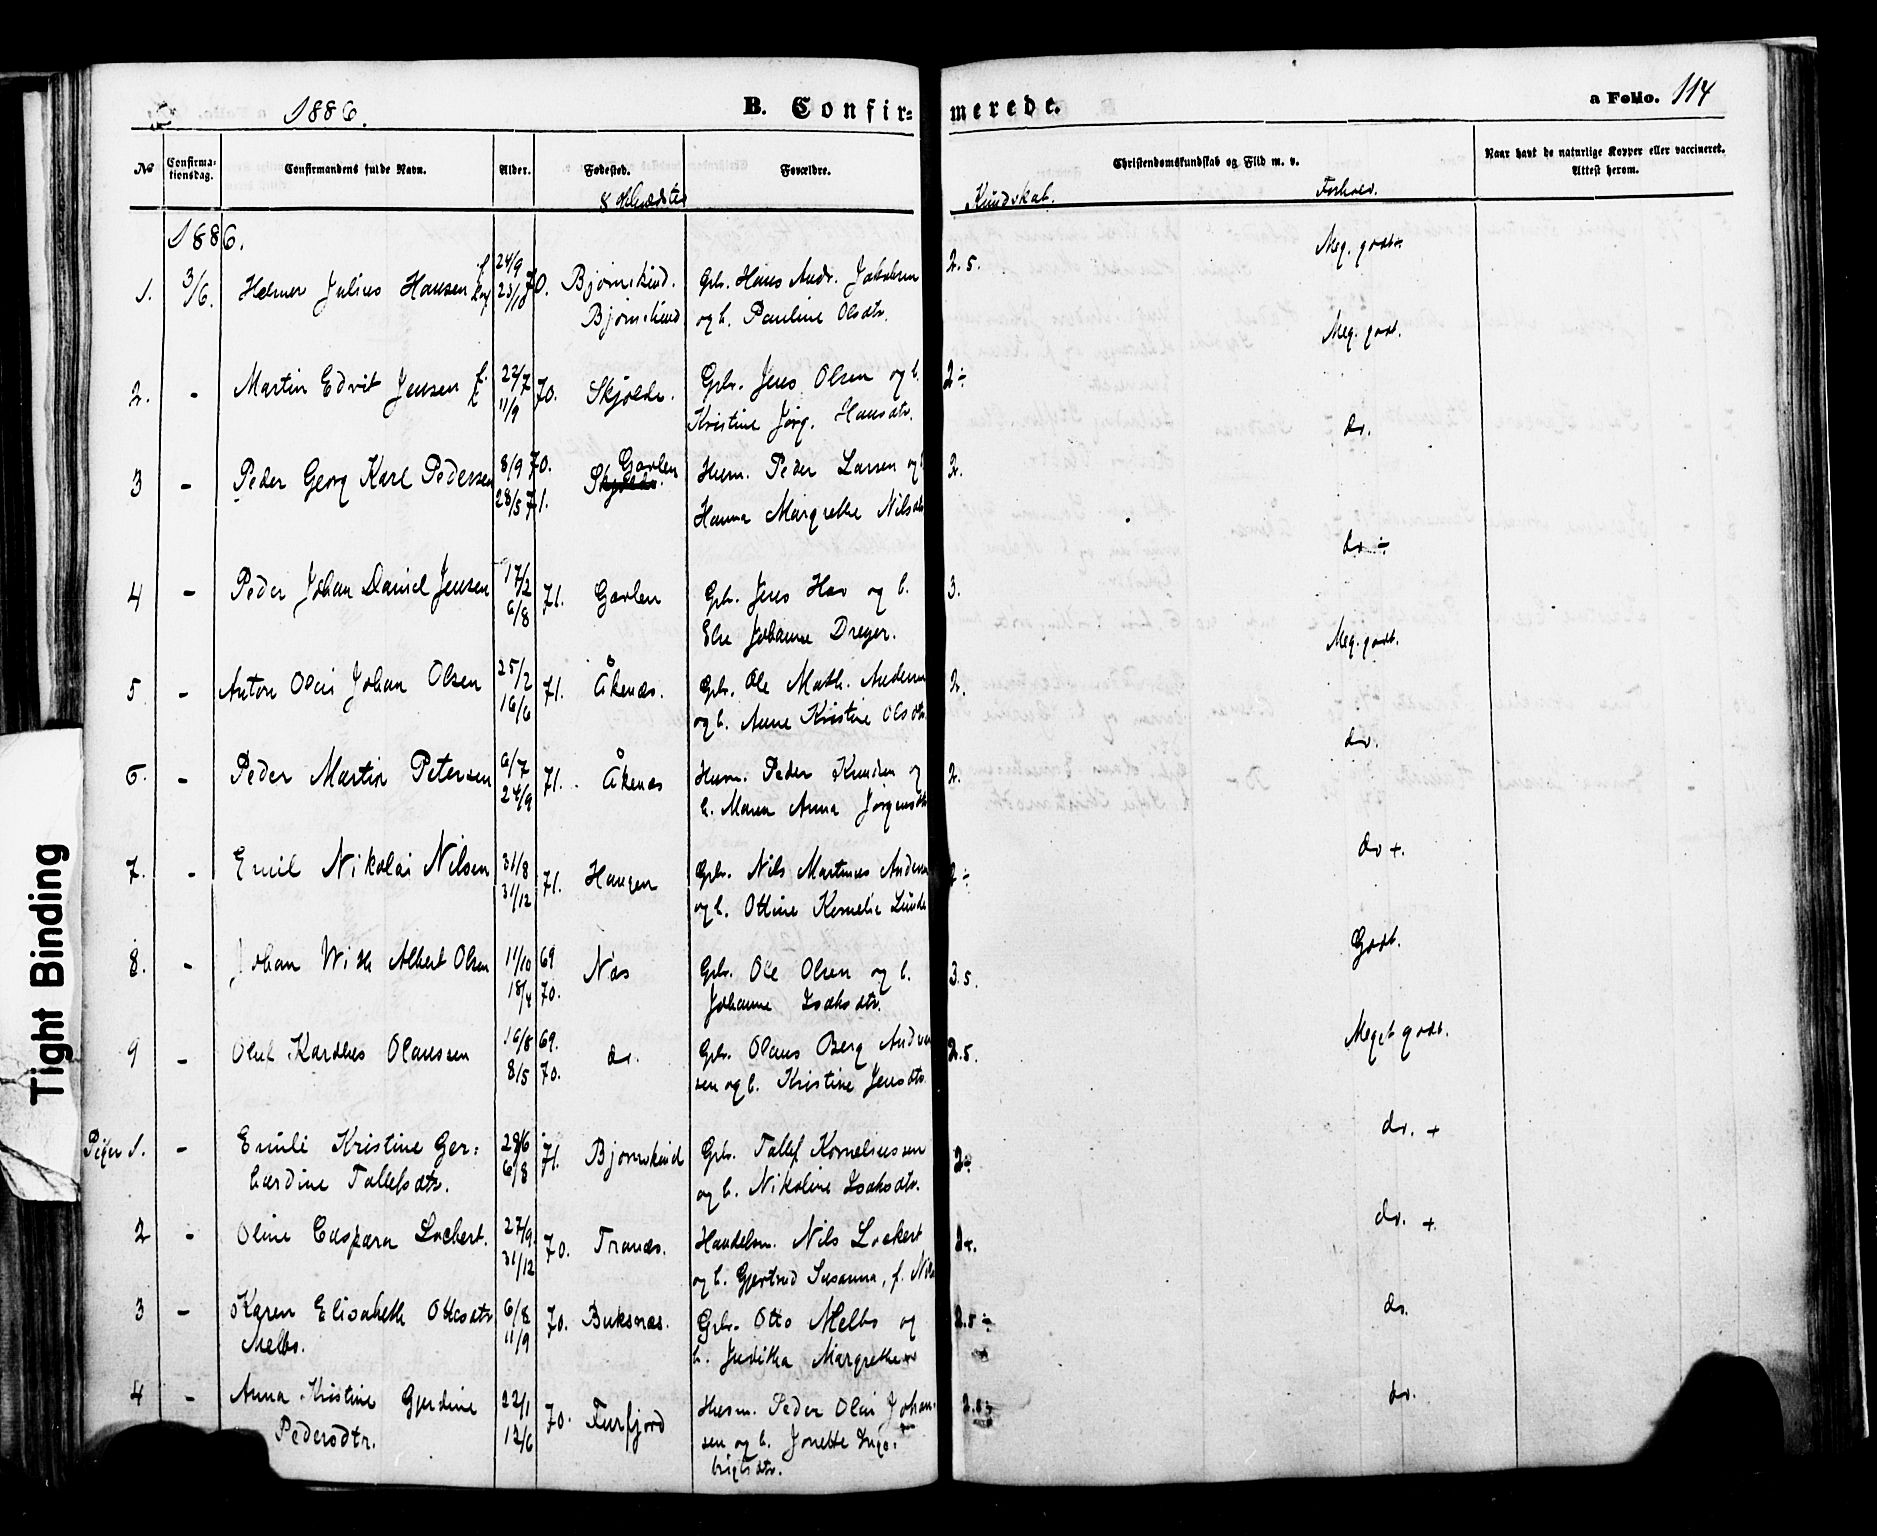 1886.
B. Confir=
merede.
a Folio. 114
No
Confirma=
tionsdag.
Confirmandens fulde Navn.
Alder.
Fødested.
Forældre.
Christendomskundskab og Flid m. v.
Naar havt de naturlige Kopper eller vaccineret.
Attest herom.
Kundskab.
Forhold.
1886.
1. 3/6. Helmer Julius Hansen f. 24/9 23/10 70. Bjørnskind.
Bjørnskind
Gbr. Hans Andr. Jakobsen
og h. Pauline Olsdtr.
2.5. Meg. godt.
2. - Martin Edvit Jensen f. 22/7 11/9 70. Skjolde.
Gbr. Jens Olsen og h.
Kristine Jørg. Hansdtr.
2÷ Meg. godt.
3 - Peder Georg Karl Pedersen 8/9 70. 28/5 71. Gavlen
Husm. Peder Larsen og h
Hanna Margrethe Nilsdtr
2. do.
4 - Peder Johan Daniel Jensen 17/2 6/8 71. Gavlen
Gbr. Jens Hav og h.
Else Johanne Dreyer.
3. do ÷
5 - Anton Olai Johan Olsen 25/2 16/6 71. Åkenæs.
Gbr. Ole Math. Andersen
og h. Anne Kristine Olsdtr
2. Meg. godt.
6. - Peder Martin Petersen 6/7 24/9 71. Åkenæs
Husm. Peder Knudsen og
h. Maren Anna Jørgensdtr
2. do.
7. - Emil Nikolai Nilsen 31/8 31/12 71. Haugen
Gbr. Nils Martinus Andersen
og h. Ottine Kornelie Lunde
2÷ do +.
8. - Johan Wilh Albert Olsen 11/10 69 18/4 70. Næs
Gbr. Ole Olsen og h.
Johanne Isaksdtr.
3.5. Godt.
9 - Oluf Kardius Olaussen 16/8 69. 8/5 70. do.
Gbr. Olaus Berg Ander
sen og h. Kristine Jensdtr
2.5. Meget godt.
Piger 1. - Emili Kristine Ger=
hardine Tollefsdtr.
29/6 6/8 71. Bjørnskind
Gbr. Tollef Korneliussen
og h. Nikoline Isaksdtr.
2÷ do. +
2 - Oline Caspara Lockert. 27/9 31/12 70. Tranæs.
Handelsm. Nils Lockert
og h. Gjertrud Susanna, f.
2+. do. +
3 - Karen Elisabeth Ottosdtr
Melbo.
6/8 11/9 70. Buksnæs.
Gbr. Otto Melbo og
h. Juditha Margrethe
2.5÷ do.
4 - Anna Kristine Gjerdine
Pedersdtr.
22/1 12/6 70. Turfjord
Husm. Peder Olai Johan=
sen og h. Jonette Inge=
brigtsdtr.
2.5÷ do.
Tight Binding